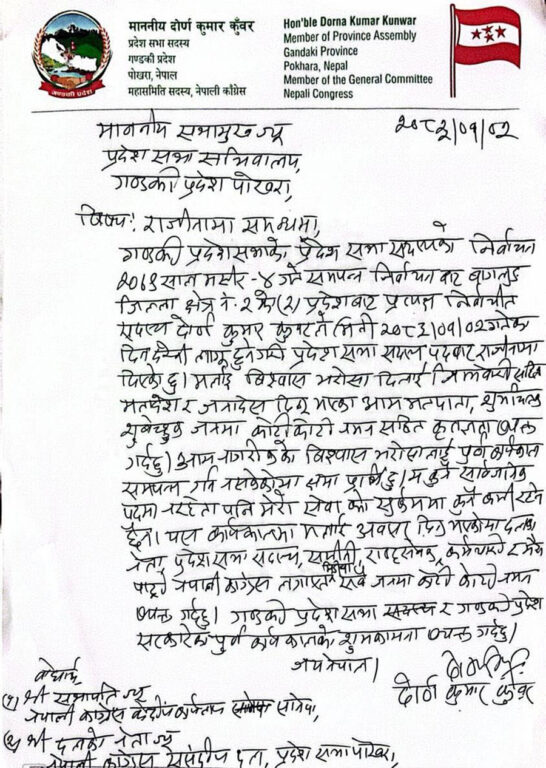 माननीय दोर्ण कुमार कुँवर
प्रदेश सभा सदस्य
गण्डकी प्रदेश
पोखरा, नेपाल
महासमिति सदस्य, नेपाली काँग्रेस
गण्डकी प्रदेश
Hon'ble Dorna Kumar Kunwar
Member of Province Assembly
Gandaki Province
Pokhara, Nepal
Member of the General Committee
Nepali Congress
माननीय सभामुख ज्यू
२०८३/०१/०२
प्रदेश सभा सचिवालय,
गण्डकी प्रदेश पोखरा,
विषय: राजीनामा सम्बन्धमा,
गण्डकी प्रदेशसभाको प्रदेश सभा सदस्यको निर्वाचन
मंसीर -४ गते सम्पन्न निर्वाचन बाट बागलुङ
जिल्ला क्षेत्र नं. २ को (२) प्रदेशबाट प्रत्यक्ष निर्वाचीत
सदस्य दोर्ण कुमार कुवरले मिती २०८३/०१/०२ गतेका
दिन देखी लागू हुनेगरी प्रदेश सभा सदस्य पदबाट राजीनामा
दिएको छु। मलाई विश्वास भरोसा दिलाई सहित
र जनादेश दिनु भएका आम मतदाता,
जनमा कोटी कोटी नमन सहित कृतज्ञता व्यक्त
गर्दछु। आम नागरीकको विश्वास भरोसालाई पूर्ण कार्यकाल
सम्पन्न गर्न नसकेकोमा क्षमा प्रार्थी छु। म कुनै सार्वजनिक
पदमा नरहेता पनि मेरो सेवा को मा कुनै कमी रहने
छैन। यस कार्यकालमा मलाई अवसर दिनु भएकोमा दलका
नेता, प्रदेश सभा सदस्य, राष्ट्रसेवक, कर्मचारी र मेरो
पार्टी नेपाली काँग्रेस लगायत सबै जनमा कोटी कोटी नमन
व्यक्त गर्दछु। गण्डकी प्रदेश सभा र गण्डकी प्रदेश
सरकारको पूर्ण कार्यकालको शुभकामना व्यक्त गर्दछु।
जय नेपाल।
दोर्ण कुमार कुँवर
बोधार्थ
(१) श्री सभापति ज्यू
नेपाली काँग्रेस केन्द्रीय कार्यालय सानेपा,
(२) श्री दलको नेता ज्यू
नेपाली काँग्रेस संसदीय दल, प्रदेश सभा पोखरा,